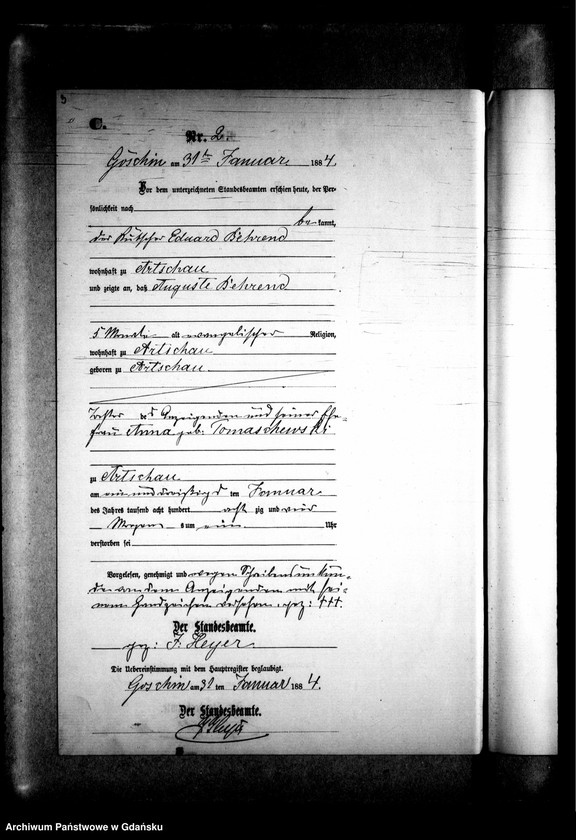 5
C.
Nr. 2.
Göschin am 31ten Januar 1884.
Vor dem unterzeichneten Standesbeamten erschien heute, der Per-
sönlichkeit nach
be kannt,
der Kutscher Eduard Behrend
wohnhaft zu Artschau
und zeigte an, daß Auguste Behrend
5 Monate alt evangelischer Religion,
wohnhaft zu Artschau
geboren zu Artschau
Tochter des Anzeigenden und seiner Ehe-
frau Anna geb: Tomaschewski
zu Artschau
am ein und dreißigsten Januar
des Jahres tausend acht hundert acht zig und vier
Morgens um Uhr
verstorben sei
Vorgelesen, genehmigt und wegen Schreibensunkun-
de von dem Anzeigenden mit sei-
nem Handzeichen versehen. gez: +++.
Der Standesbeamte.
gez: F. Heyer.
Die Uebereinstimmung mit dem Hauptregister beglaubigt.
Göschin am 31 ten Januar 1884.
Der Standesbeamte.
Archiwum Państwowe w Gdańsku